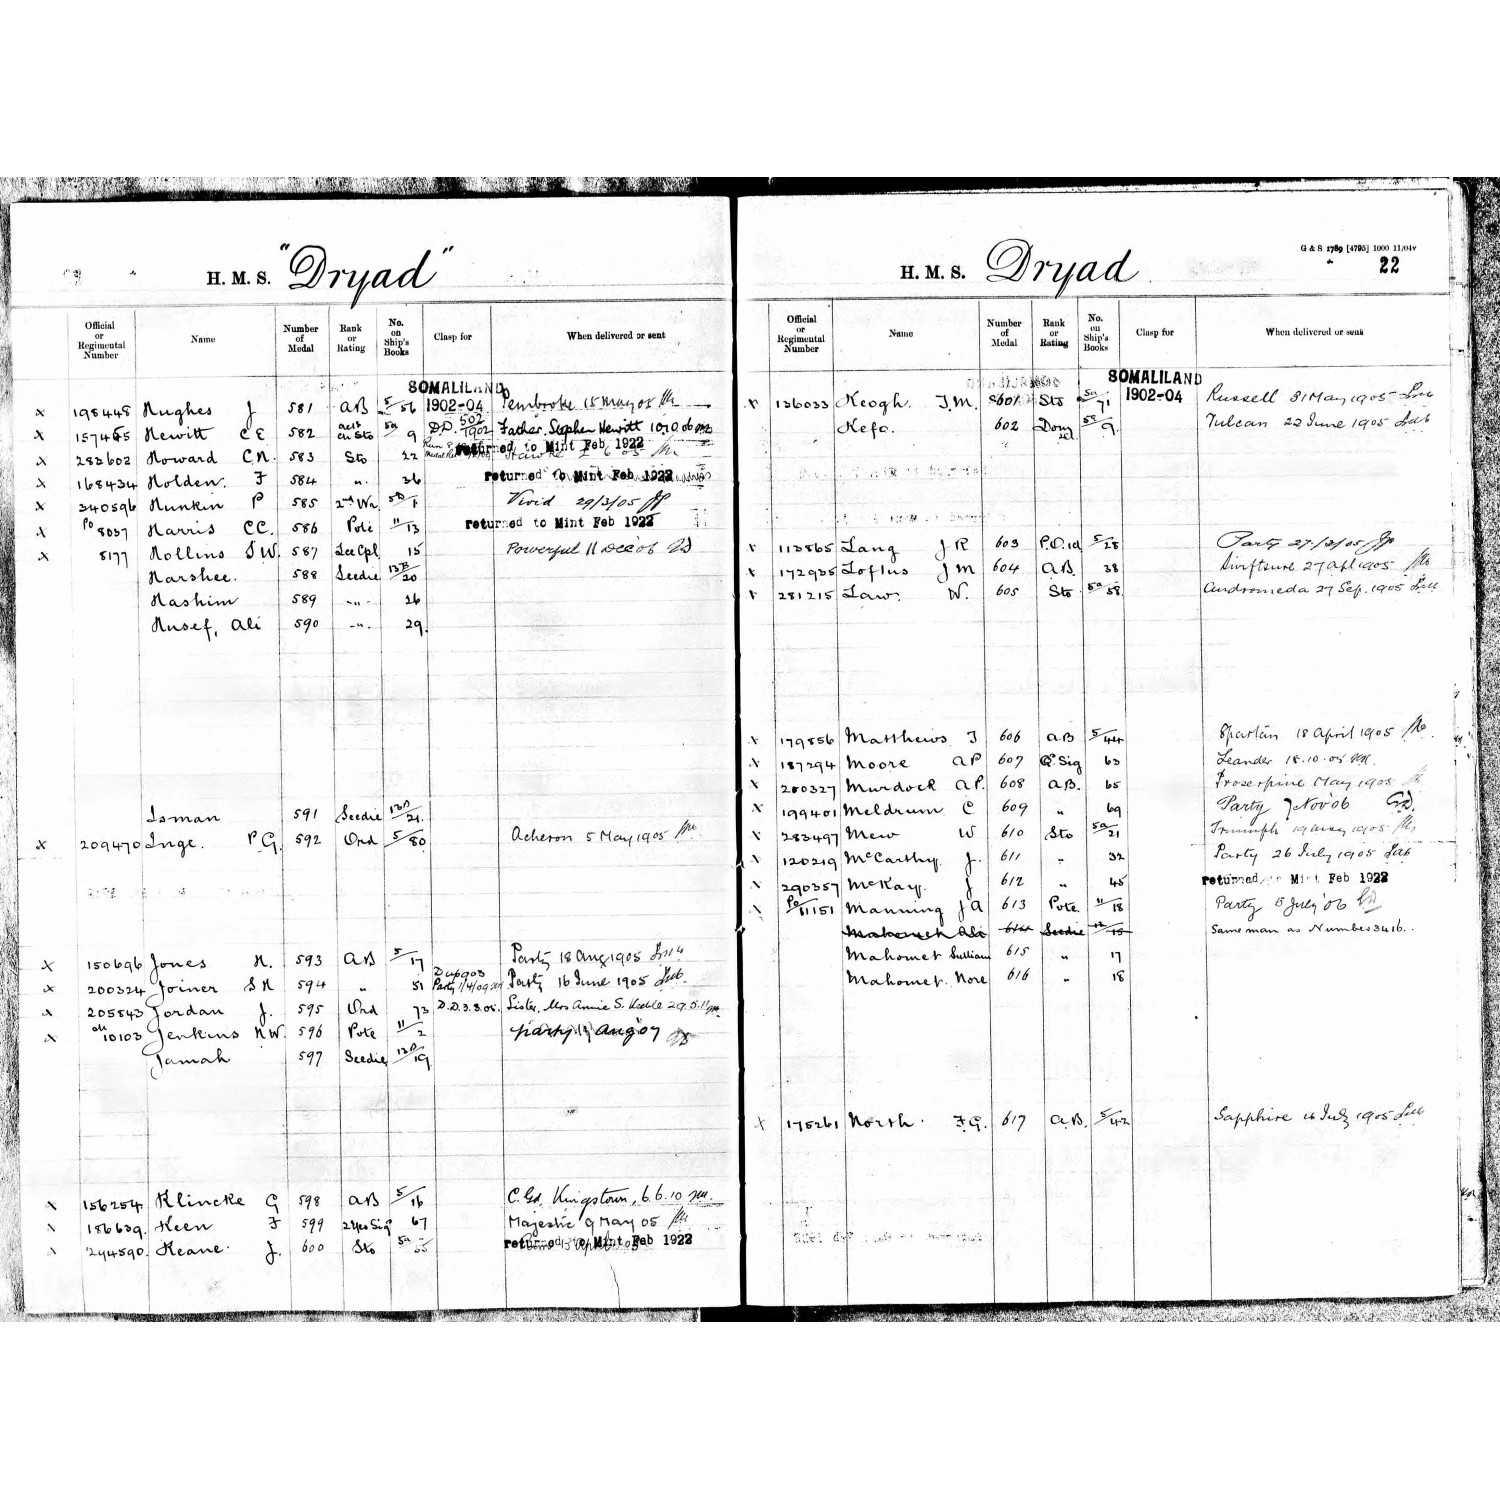 H. M. S. "Dryad"
Official or Regimental Number
Name
Number of Medal
Rank or Rating
No. on Ship's Books
Clasp for
When delivered or sent
SOMALILAND
1902-04
x 198448 Hughes J 581 AB 5/56 Pembroke 15 May 05
x 157465 Hewitt C E 582 Sto 5a/9 D.D. 502/1902 Father, Stephen Hewitt 10.10.06
x 283602 Howard C H. 583 Sto 22 returned to Mint Feb 1922
x 168434 Holden. F 584 ". 36 returned to Mint Feb 1922
x 340596 Hunkin P 585 2nd Wr. 5D/1 Vivid 29/3/05
x Po 8037 Harris C C. 586 Pote 11/13 returned to Mint Feb 1922
x 8177 Hollins S W. 587 Lce Cpl. 15 Powerful 11 Dec '06
Harshee. 588 Seedie 13B/20
Hashim 589 -"- 26
Husef, Ali 590 -". 29.
Isman 591 Seedie 13B/21.
x 209470 Inge. P G. 592 Ord 5/80 Acheron 5 May 1905
x 150696 Jones H. 593 AB 5/17 Party 18 Aug 1905
x 200324 Joiner S H 594 " 51 Party 16 June 1905
x 205543 Jordan J. 595 Ord 73 D.D. 3.3.05. Sister, Mrs Annie S. Keble 29.5.11
x 10103 Jenkins H W. 596 Pote 11/2 party Aug '07
Jamah 597 Seedie 13B/19
x 156254 Klincke G 598 AB 5/16 C. Gd. Kingstown, 6.6.10
x 186639. Keen F 599 2 Yeo Sig 67 Majestic 9 May 05
x 294590. Keane. J. 600 Sto 5a/55 returned to Mint Feb 1922
G & S 1789 [4795] 1000 11/04v
22
H. M. S. Dryad
Official or Regimental Number
Name
Number of Medal
Rank or Rating
No. on Ship's Books
Clasp for
When delivered or sent
SOMALILAND
1902-04
x 136033 Keogh. T. M. 601 Sto 5a/71 Russell 31 May 1905
Kefo. 602 Dom 58/9. Vulcan 22 June 1905
x 113865 Lang J R 603 P.O. 1cl 5/28 Party 27/3/05
x 172935 Loftus J M 604 AB. 38 Swiftsure 27 Apl 1905
x 281215 Law. W. 605 Sto 5a/58. Andromeda 27 Sep. 1905
x 179856 Matthews J 606 AB 5/44 Spartan 18 April 1905
x 187294 Moore A P 607 Sig 63 Leander 18.10.05
x 200327 Murdock A P. 608 AB. 65 Proserpine May 1905
x 199401 Meldrum C 609 " 69 Party 7 Nov '06
x 283497 Mew W 610 Sto 5a/21 Triumph 19 May 1905
x 120219 McCarthy. J. 611 " 32 Party 26 July 1905
x 290357 McKay. J 612 " 45 returned to Mint Feb 1922
x Po/11151 Manning J A 613 Pote 11/18 Party 5 July '06
Mahomet Ali 614 Seedie 13/15 Same man as Number 3416.
Mahomet Sullian 615 " 17
Mahomet. Nore 616 " 18
x 175261 North. F. G. 617 A.B. 5/42 Sapphire 4 July 1905